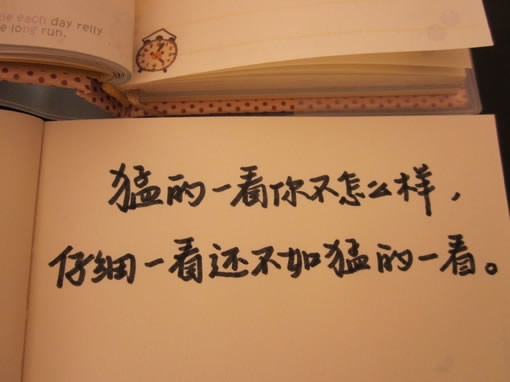 me each day relly
e long run.
猛的一看你不怎么样，
仔细一看还不如猛的一看。